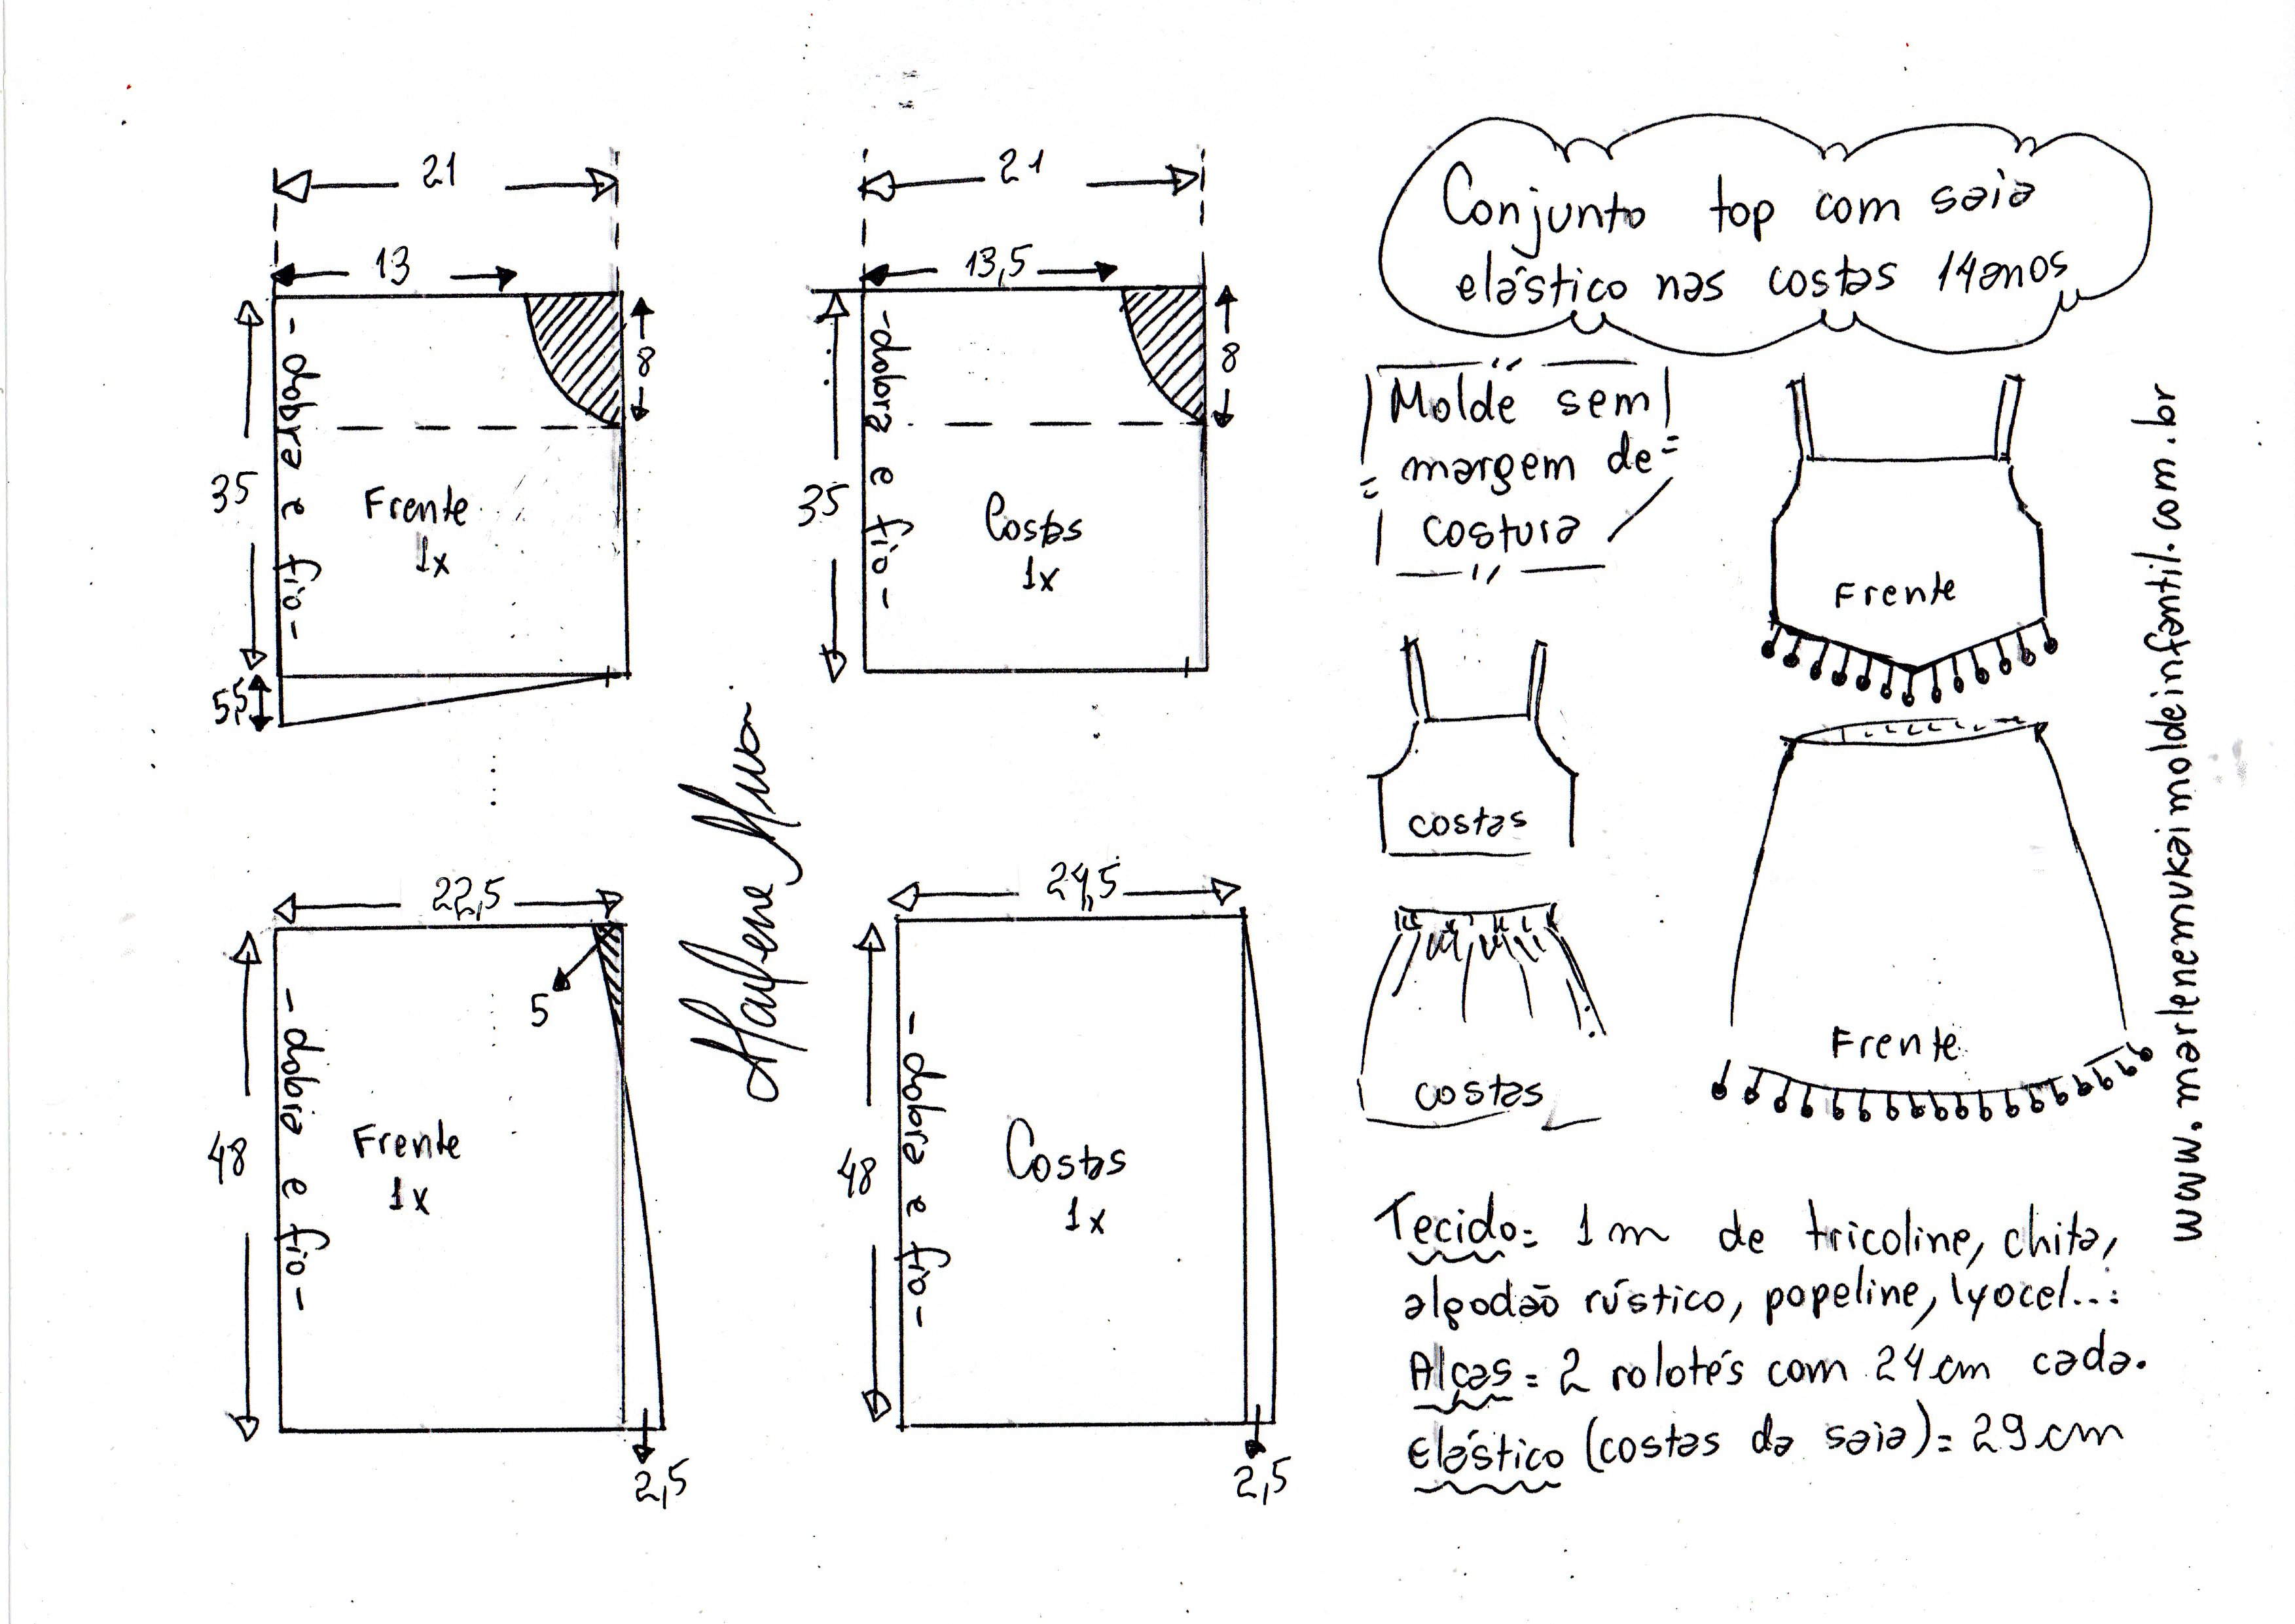 21
13
35
8
- dobra e fio -
Frente
1x
5,5
21
13,5
35
8
- dobra e fio -
Costas
1x
22,5
5
48
- dobra e fio -
Frente
1x
2,5
24,5
48
- dobra e fio -
Costas
1x
2,5
Conjunto top com saia
elástico nas costas 14anos
Molde sem
margem de
costura
Frente
costas
Frente
costas
Tecido= 1m de tricoline, chita,
algodão rústico, popeline, lyocel...
Alças = 2 rolotés com 24cm cada.
elástico (costas da saia)= 29cm
www.marlenemukaimoldeinfantil.com.br